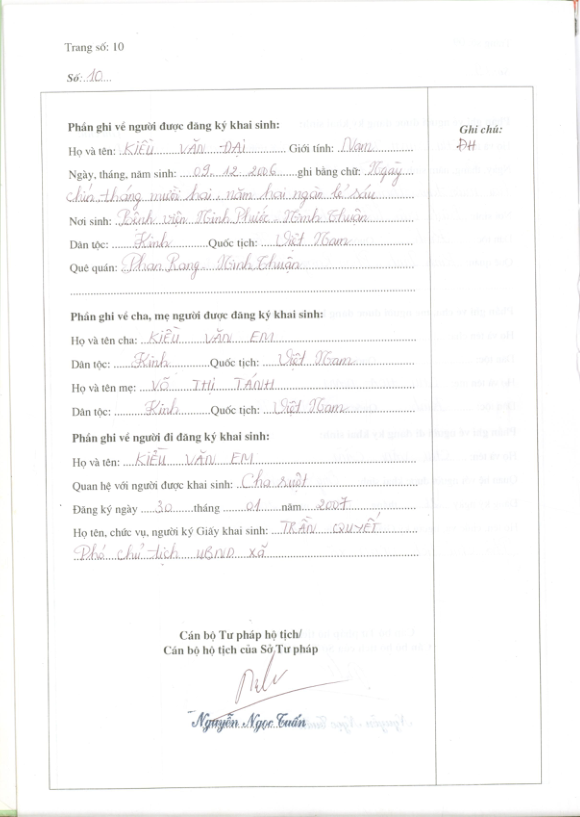 Trang số: 10
Số: 10
Phần ghi về người được đăng ký khai sinh:
Họ và tên: KIỀU VĂN ĐẠI Giới tính: Nam
Ngày, tháng, năm sinh: 09. 12. 2006 ghi bằng chữ: Ngày
chín tháng mười hai, năm hai ngàn lẻ sáu
Nơi sinh: Bệnh viện Ninh Phước Ninh Thuận
Dân tộc: Kinh Quốc tịch: Việt Nam
Quê quán: Phan Rang Ninh Thuận
Phần ghi về cha, mẹ người được đăng ký khai sinh:
Họ và tên cha: KIỀU VĂN EM
Dân tộc: Kinh Quốc tịch: Việt Nam
Họ và tên mẹ: VÕ THỊ TÁNH
Dân tộc: Kinh Quốc tịch: Việt Nam
Phần ghi về người đi đăng ký khai sinh:
Họ và tên: KIỀU VĂN EM
Quan hệ với người được khai sinh: Cha ruột
Đăng ký ngày 30 tháng 01 năm 2007
Họ tên, chức vụ, người ký Giấy khai sinh: TRẦN QUYẾT
Phó chủ tịch UBND xã
Cán bộ Tư pháp hộ tịch/
Cán bộ hộ tịch của Sở Tư pháp
Nguyễn Ngọc Tuấn
Ghi chú:
ĐH